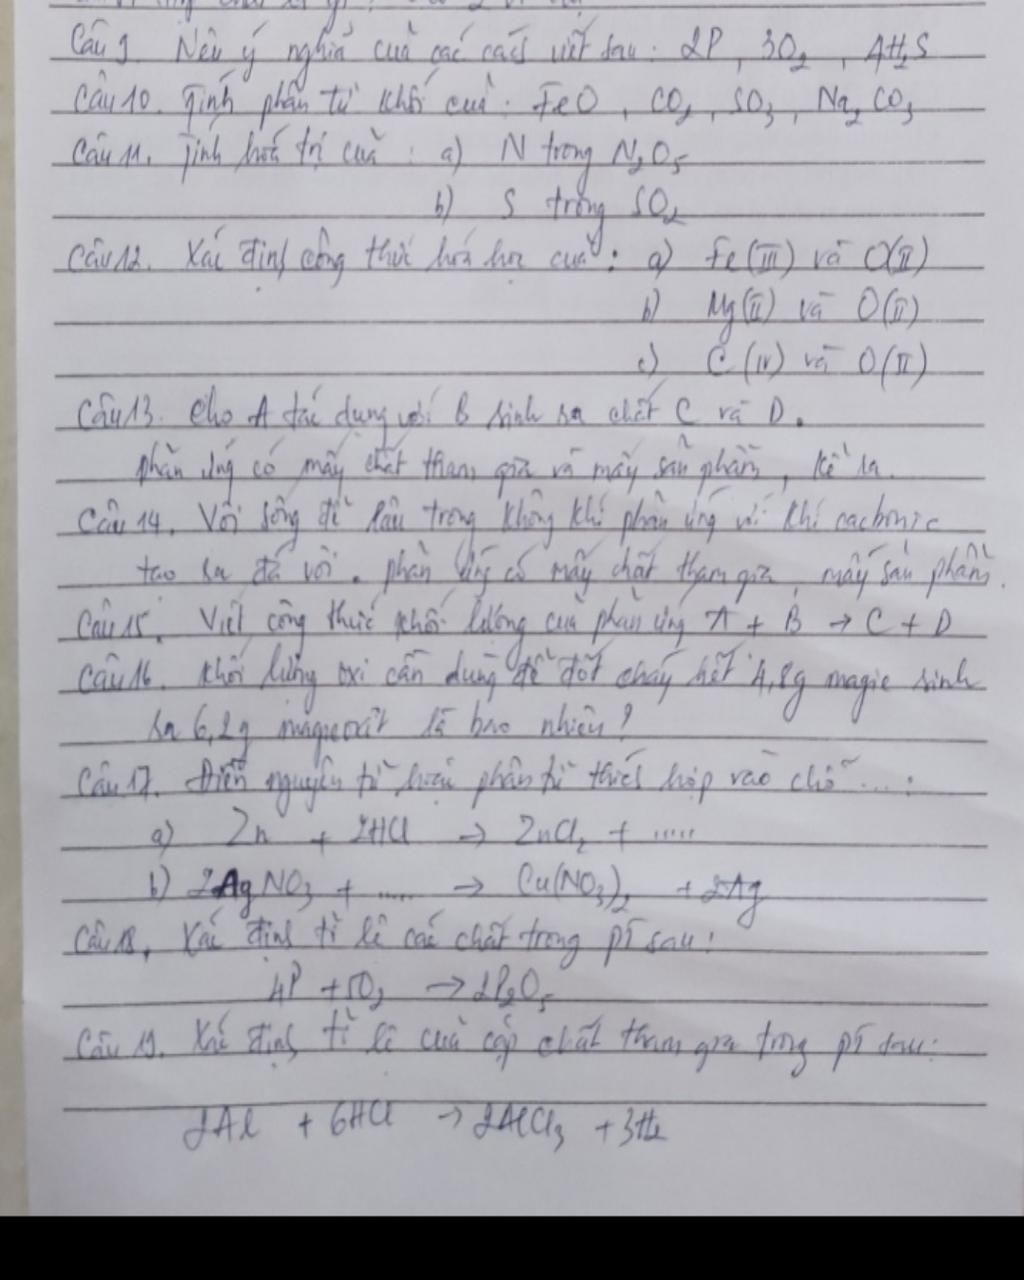 Câu 9. Nêu ý nghĩa của các cách viết sau: 2P, 3O2, 4H2S
Câu 10. Tính phân tử khối của: FeO, CO2, SO3, Na2CO3
Câu 11. Tính hoá trị của: a) N trong N2O5
b) S trong SO2
Câu 12. Xác định công thức hóa học của: a) Fe(III) và O(II)
b) Mg(II) và O(II)
c) C(IV) và O(II)
Câu 13. Cho A tác dụng với B sinh ra chất C và D.
phản ứng có mấy chất tham gia và mấy sản phẩm, kể ra.
Câu 14. Vôi sống để lâu trong không khí phản ứng với khí cacbonic
tạo ra đá vôi. phản ứng có mấy chất tham gia, mấy sản phẩm.
Câu 15. Viết công thức khối lượng của phản ứng A + B → C + D
Câu 16. Khối lượng oxi cần dùng để đốt cháy hết 4,8g magie sinh
ra 6,2g magieoxit là bao nhiêu?
Câu 17. Điền nguyên tử hoặc phân tử thích hợp vào chỗ ....:
a) Zn + 2HCl → ZnCl2 + .....
b) 2AgNO3 + ..... → Cu(NO3)2 + 2Ag
Câu 18. Xác định tỉ lệ các chất trong pt sau:
4P + 5O2 → 2P2O5
Câu 19. Xác định tỉ lệ của cặp chất tham gia trong pt sau:
2Al + 6HCl → 2AlCl3 + 3H2